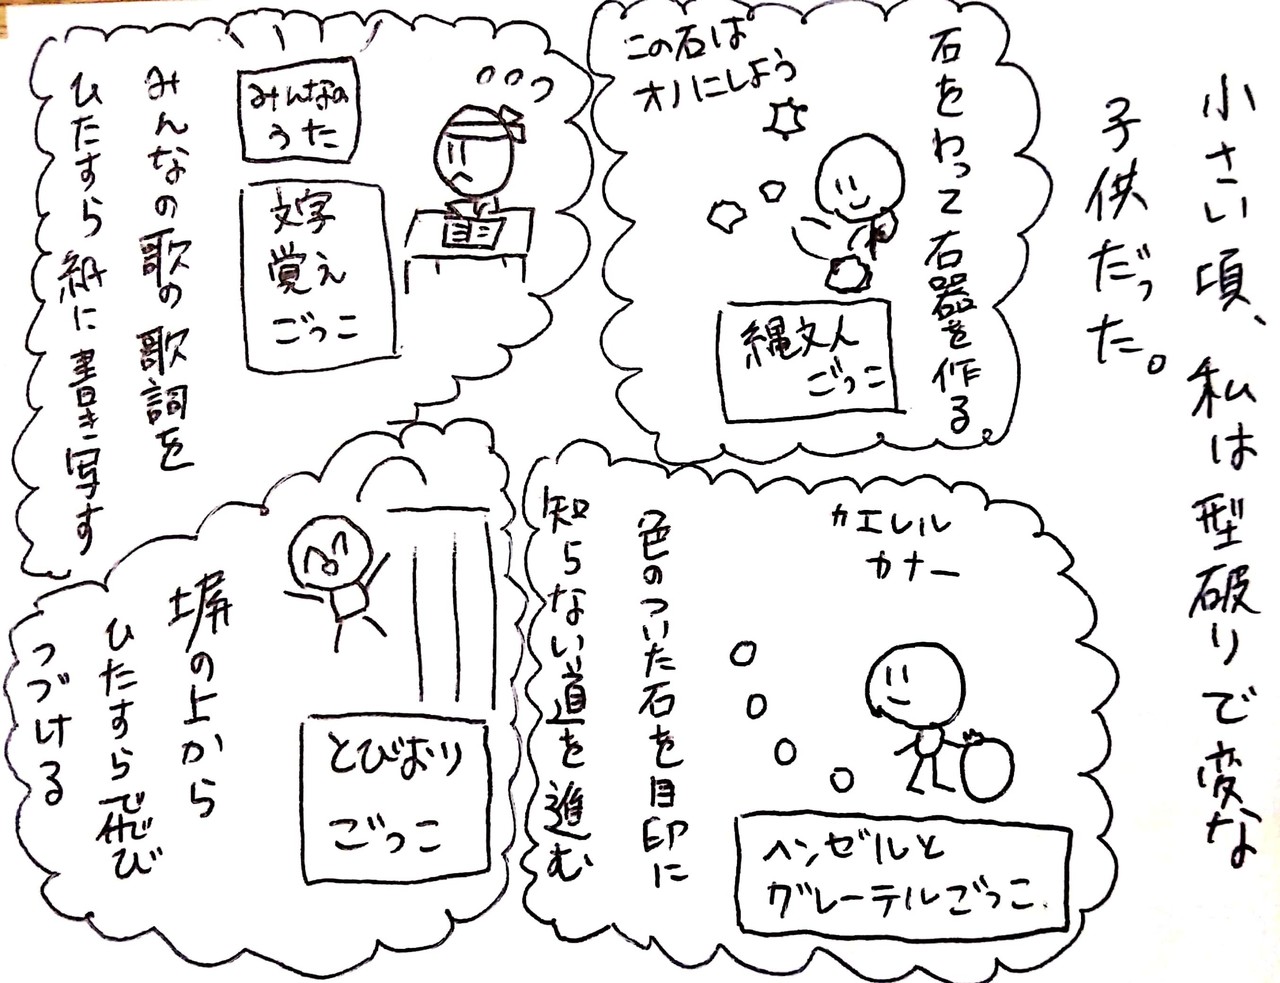 小さい頃、私は型破りで変な
子供だった。
石をわって石器を作る
この石は
オノにしよう
縄文人
ごっこ
みんなの
うた
文字
覚え
ごっこ
みんなの歌の歌詞を
ひたすら紙に書き写す
カエレル
カナー
色のついた石を目印に
知らない道を進む
ヘンゼルと
グレーテルごっこ
塀の上から
ひたすら飛び
つづける
とびおり
ごっこ